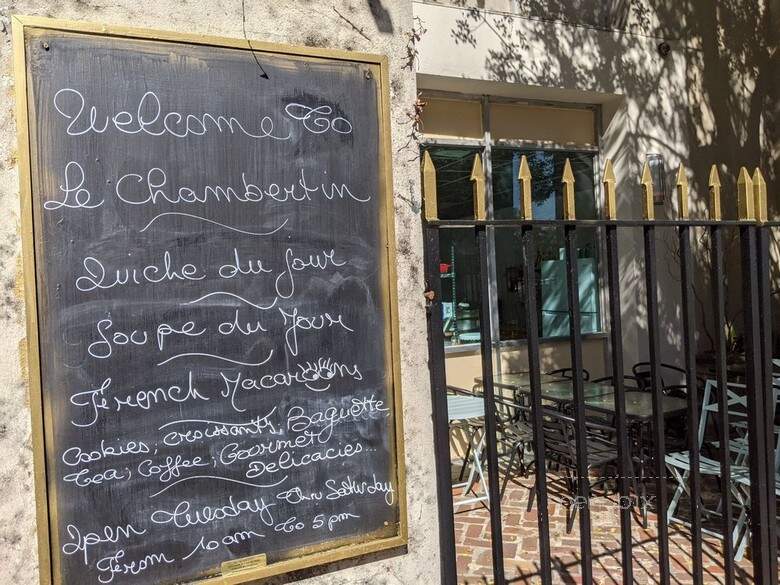 Welcome To
Le Chambertin
Quiche du Jour
Soupe du Jour
French Macarons
Cookies, Croissants, Baguette
Tea, Coffee, Gourmet
Delicacies...
Open Tuesday Thru Saturday
From 10am To 5pm